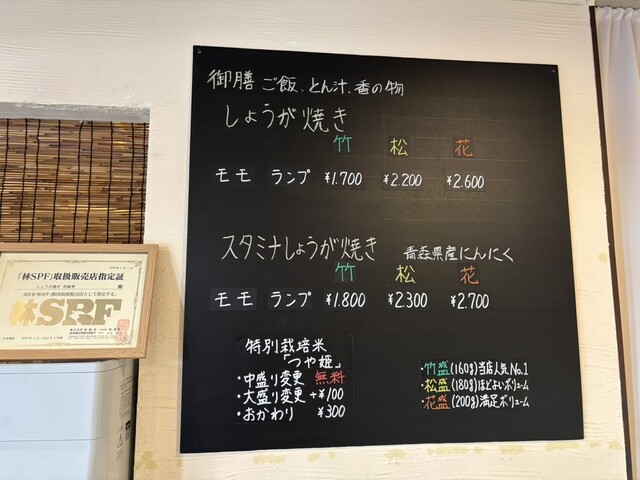 御膳 ご飯、とん汁、香の物
しょうが焼き
竹 松 花
モモ ランプ ¥1.700 ¥2.200 ¥2.600
スタミナしょうが焼き 青森県産にんにく
竹 松 花
モモ ランプ ¥1.800 ¥2.300 ¥2.700
特別栽培米
「つや姫」
・中盛り変更 無料
・大盛り変更 +¥100
・おかわり ¥300
・竹盛(160g)当店人気No.1
・松盛(180g)ほどよいボリューム
・花盛(200g)満足ボリューム
「林SPF」取扱販売店指定証
林SPF